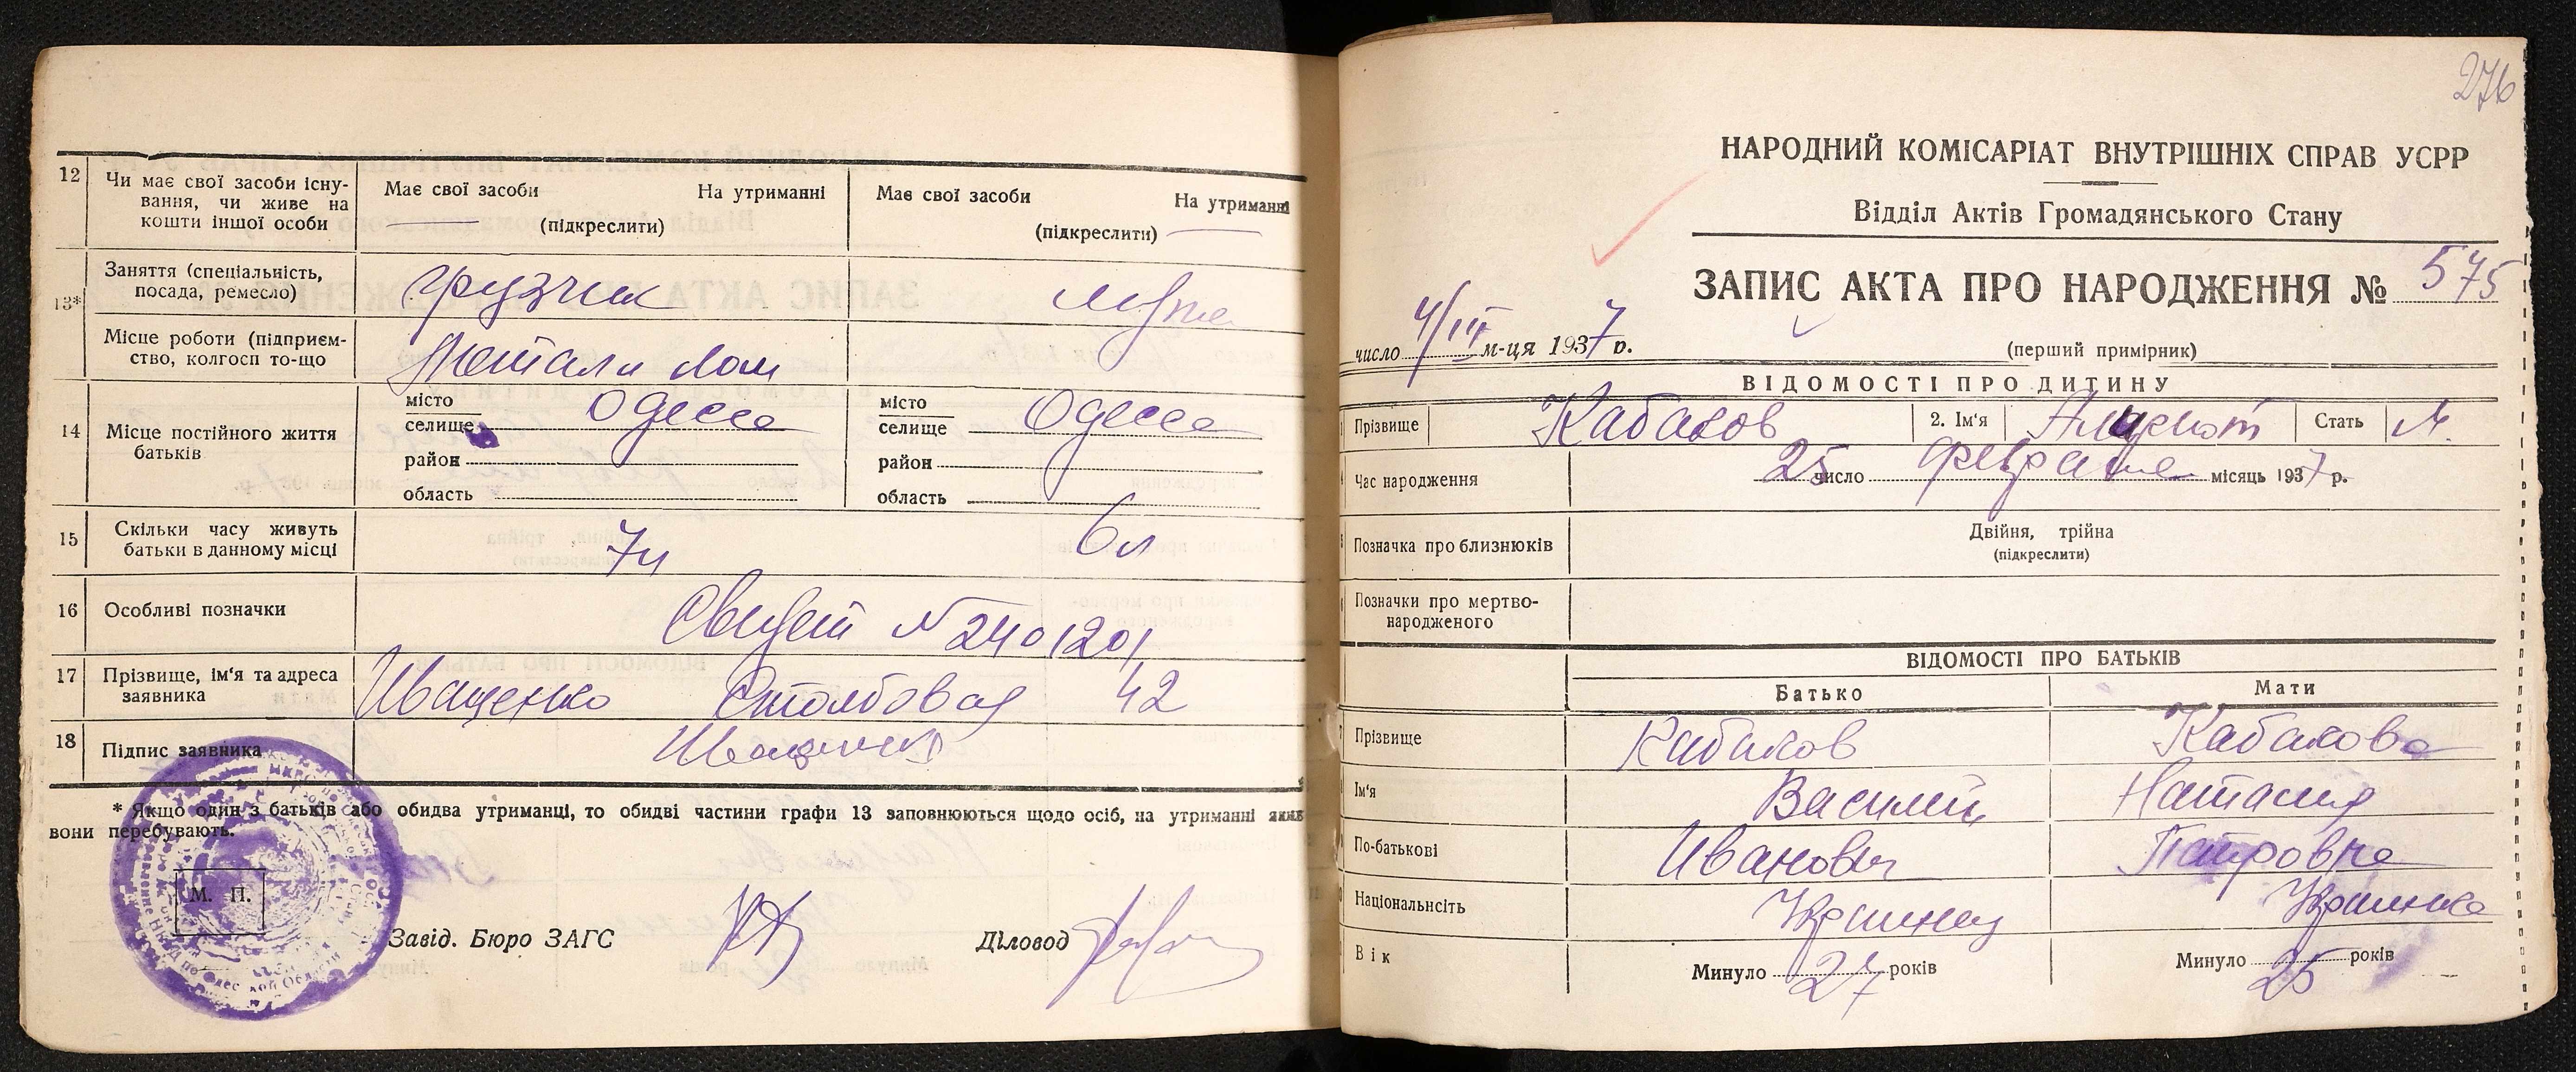 12
Чи має свої засоби існу-
вання, чи живе на
кошти іншої особи
Має свої засоби На утриманні
(підкреслити)
Має свої засоби На утриманні
(підкреслити)
13*
Заняття (спеціальність,
посада, ремесло)
грузчик
мужа
Місце роботи (підприєм-
ство, колгосп то-що
Метали лом
14
Місце постійного життя
батьків
місто
селище Одесса
район
область
місто
селище Одесса
район
область
15
Скільки часу живуть
батьки в данному місці
7л
6л
16
Особливі позначки
Свидет N 2401201
17
Прізвище, ім'я та адреса
заявника
Иващенко Столбовая 42
18
Підпис заявника
Иващенко
* Якщо один з батьків або обидва утриманці, то обидві частини графи 13 заповнюються щодо осіб, на утриманні яких
вони перебувають.
М. П.
Завід. Бюро ЗАГС
Діловод
276
НАРОДНИЙ КОМІСАРІАТ ВНУТРІШНІХ СПРАВ УСРР
Відділ Актів Громадянського Стану
ЗАПИС АКТА ПРО НАРОДЖЕННЯ № 575
число 4/III м-ця 1937 р.
(перший примірник)
ВІДОМОСТІ ПРО ДИТИНУ
Прізвище Кабаков 2. Ім'я Стать М.
Час народження 25 число февраля місяць 1937 р.
Позначка про близнюків
Двійня, трійна
(підкреслити)
Позначки про мертво-
народженого
ВІДОМОСТІ ПРО БАТЬКІВ
Батько Мати
Прізвище Кабаков Кабакова
Ім'я Василий Наталия
По-батькові Иванович Петровна
Національність Украинец Украинка
Вік
Минуло 27 років
Минуло 25 років